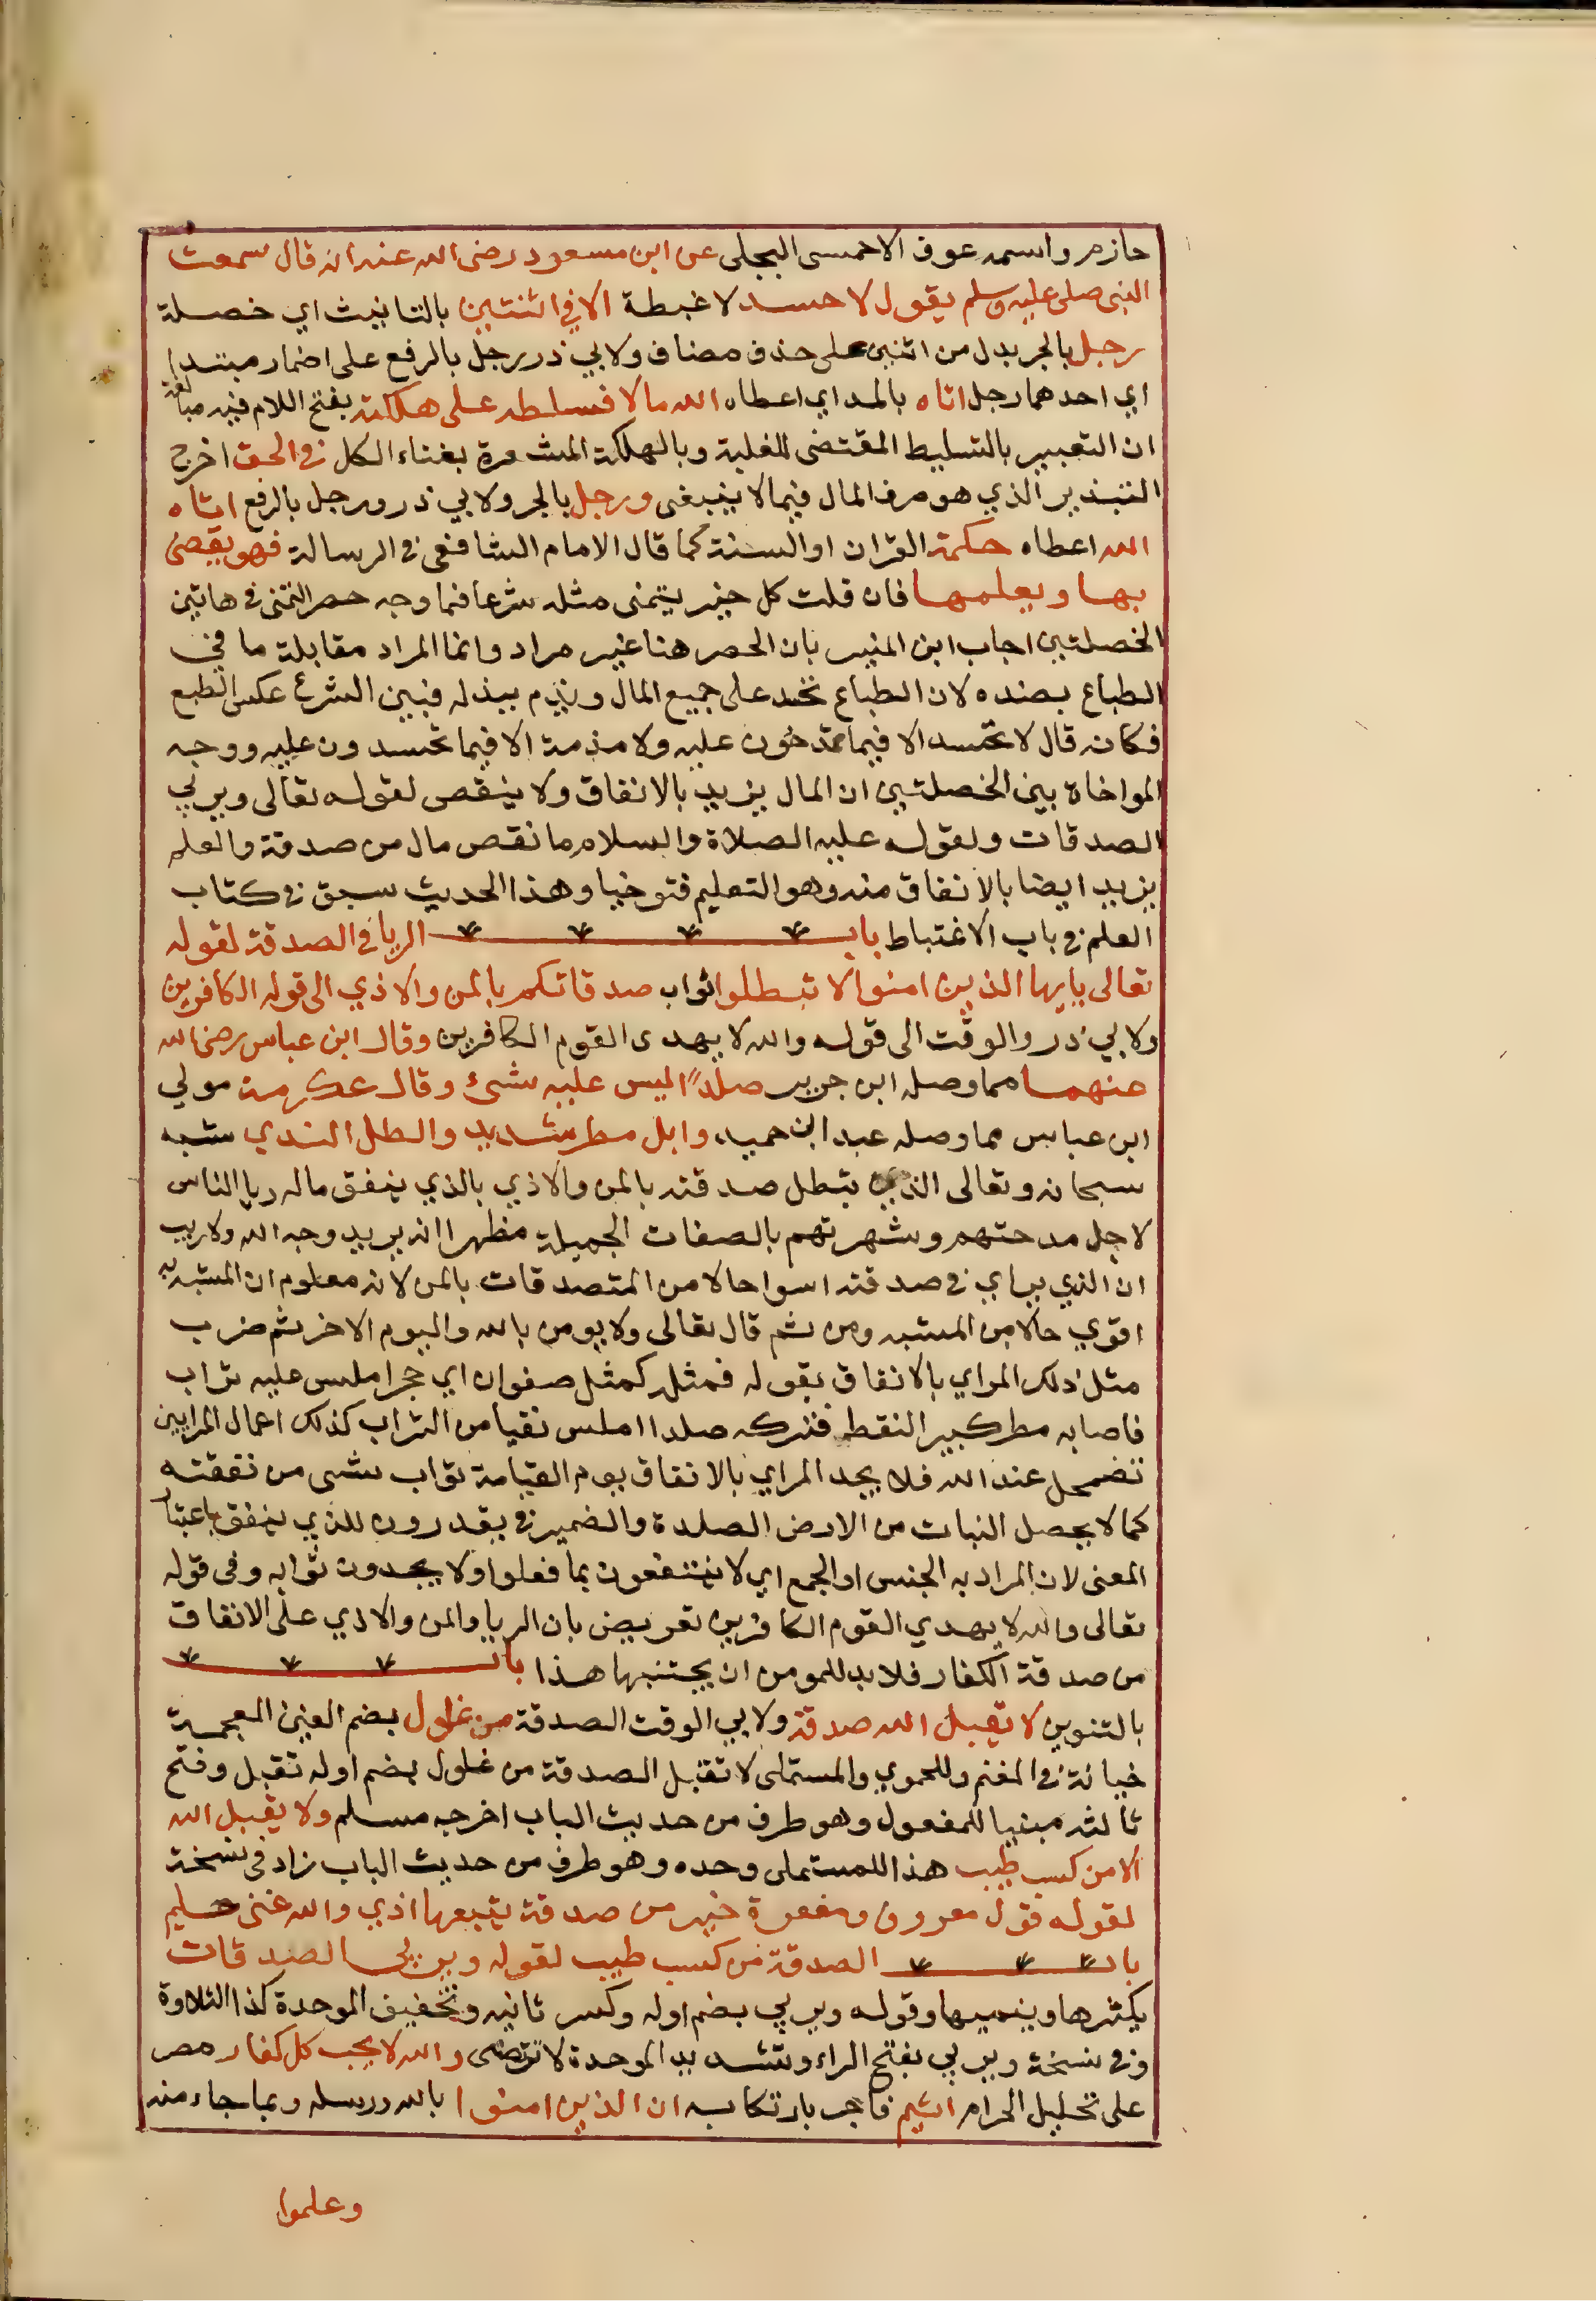 حازم واسمه عوف الاحمسى البجلى عن ابن مسعود رضى الله عنه انه قال سمعت
النبى صلى عليه وسلم يقول لا حسد لا غبطة الا في اثنتين بالتانيث اي خصلة
رجل بالجر بدل من اثنين على حذف مضاف ولابي ذر رجل بالرفع على اضمار مبتدا
اي احدهما رجل اتاه بالمد اي اعطاه الله مالا فسلطه على هلكته بفتح اللام فيه مبالغة
ان التعبير بالتسليط المقتضى للغلبة وبالهلكة المشعرة بفناء الكل في الحق اخرج
التبذير الذي هو صرف المال فيما لا ينبغى ورجل بالجر ولابي ذر ورجل بالرفع اتاه
الله اعطاه حكمة القران او السنة كما قال الامام الشافعى في الرسالة فهو يقضى
بها ويعلمها فان قلت كل خير يتمنى مثله شرعا فما وجه حصر التمنى في هاتين
الخصلتين اجاب ابن المنير بان الحصر هنا غير مراد وانما المراد مقابلة ما في
الطباع بضده لان الطباع تحسد على جميع المال وتذم ببذله فبين الشرع عكس الطبع
فكانه قال لا تحسد الا فيما تمدحون عليه ولا مذمة الا فيما تحسدون عليه ووجه
المواخاة بين الخصلتين ان المال يزيد بالانفاق ولا ينقص لقوله تعالى ويربي
الصدقات ولقوله عليه الصلاة والسلام ما نقص مال من صدقة والعلم
يزيد ايضا بالانفاق منه وهو التعليم فتوخيا وهذا الحديث سبق في كتاب
العلم في باب الاغتباط باب الريا في الصدقة لقوله
تعالى يايها الذين امنوا لا تبطلوا ثواب صدقاتكم بالمن والاذي الى قوله الكافرين
ولابي ذر والوقت الى قوله والله لا يهدى القوم الكافرين وقال ابن عباس رضى الله
عنهما مما وصله ابن جرير صلدا ليس عليه شىء وقال عكرمة مولي
ابن عباس مما وصله عبد ابن حميد وابل مطر شديد والطل الندي شبه
سبحانه وتعالى الذي يبطل صدقته بالمن والاذي بالذي ينفق ماله ريا الناس
لاجل مدحتهم وشهرتهم بالصفات الجميلة مظهرا انه يريد وجه الله ولا ريب
ان الذي يراي في صدقته اسوا حالا من المتصدقات بالمن لانه معلوم ان المشبه به
اقوي حالا من المشبه ومن ثم قال تعالى ولا يومن بالله واليوم الاخر ثم ضرب
مثل ذلك المراي بالانفاق بقوله فمثله كمثل صفوان اي حجر املس عليه تراب
فاصابه مطر كبير النقط فتركه صلدا املس نقيا من التراب كذلك اعمال المرايين
تضمحل عند الله فلا يجد المراي بالانفاق يوم القيامة ثواب شى من نفقته
كما لا يحصل النبات من الارض الصلدة والضمير في يقدرون للذي ينفق باعتبار
المعنى لان المراد به الجنس او الجمع اي لا ينتفعون بما فعلوا ولا يجدون ثوابه وفى قوله
تعالى والله لا يهدي القوم الكافرين تعريض بان الريا والمن والاذي على الانفاق
من صدقة الكفار فلا بد للمومن ان يجتنبها هذا باب
بالتنوين لا تقبل الله صدقة ولابي الوقت الصدقة من غلول بضم الغين المعجمة
خيانة في المغنم وللحموي والمستملى لا تقبل الصدقة من غلول بضم اوله تقبل وفتح
ثالثه مبنيا للمفعول وهو طرف من حديث الباب اخرجه مسلم ولا يقبل الله
الا من كسب طيب هذا للمستملى وحده وهو طرف من حديث الباب زاد في نسخة
لقوله قول معروف ومغفرة خير من صدقة يتبعها اذي والله غنى حليم
باب الصدقة من كسب طيب لقوله ويربى الصدقات
يكثرها وينميها وقوله ويربي بضم اوله وكسر ثانيه وتخفيف الموحدة كذا التلاوة
وفي نسخة ويربي بفتح الراء وتشديد الموحدة لا ترتضى والله لا يحب كل كفار مصر
على تحليل الحرام اثيم فاجر بارتكابه ان الذين امنوا بالله ورسله وبما جاء منه
وعلموا